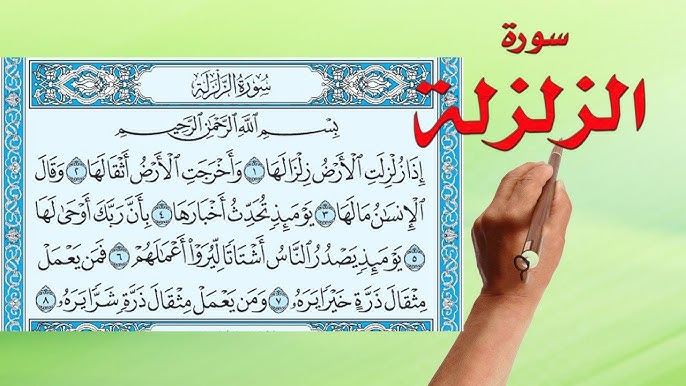 سورة
الزلزلة
سُورَةُ الزَّلْزَلَةِ
بِسْمِ اللَّهِ الرَّحْمَٰنِ الرَّحِيمِ
إِذَا زُلْزِلَتِ الْأَرْضُ زِلْزَالَهَا ١ وَأَخْرَجَتِ الْأَرْضُ أَثْقَالَهَا ٢ وَقَالَ
الْإِنسَانُ مَا لَهَا ٣ يَوْمَئِذٍ تُحَدِّثُ أَخْبَارَهَا ٤ بِأَنَّ رَبَّكَ أَوْحَىٰ لَهَا
٥ يَوْمَئِذٍ يَصْدُرُ النَّاسُ أَشْتَاتًا لِّيُرَوْا أَعْمَالَهُمْ ٦ فَمَن يَعْمَلْ
مِثْقَالَ ذَرَّةٍ خَيْرًا يَرَهُ ٧ وَمَن يَعْمَلْ مِثْقَالَ ذَرَّةٍ شَرًّا يَرَهُ ٨